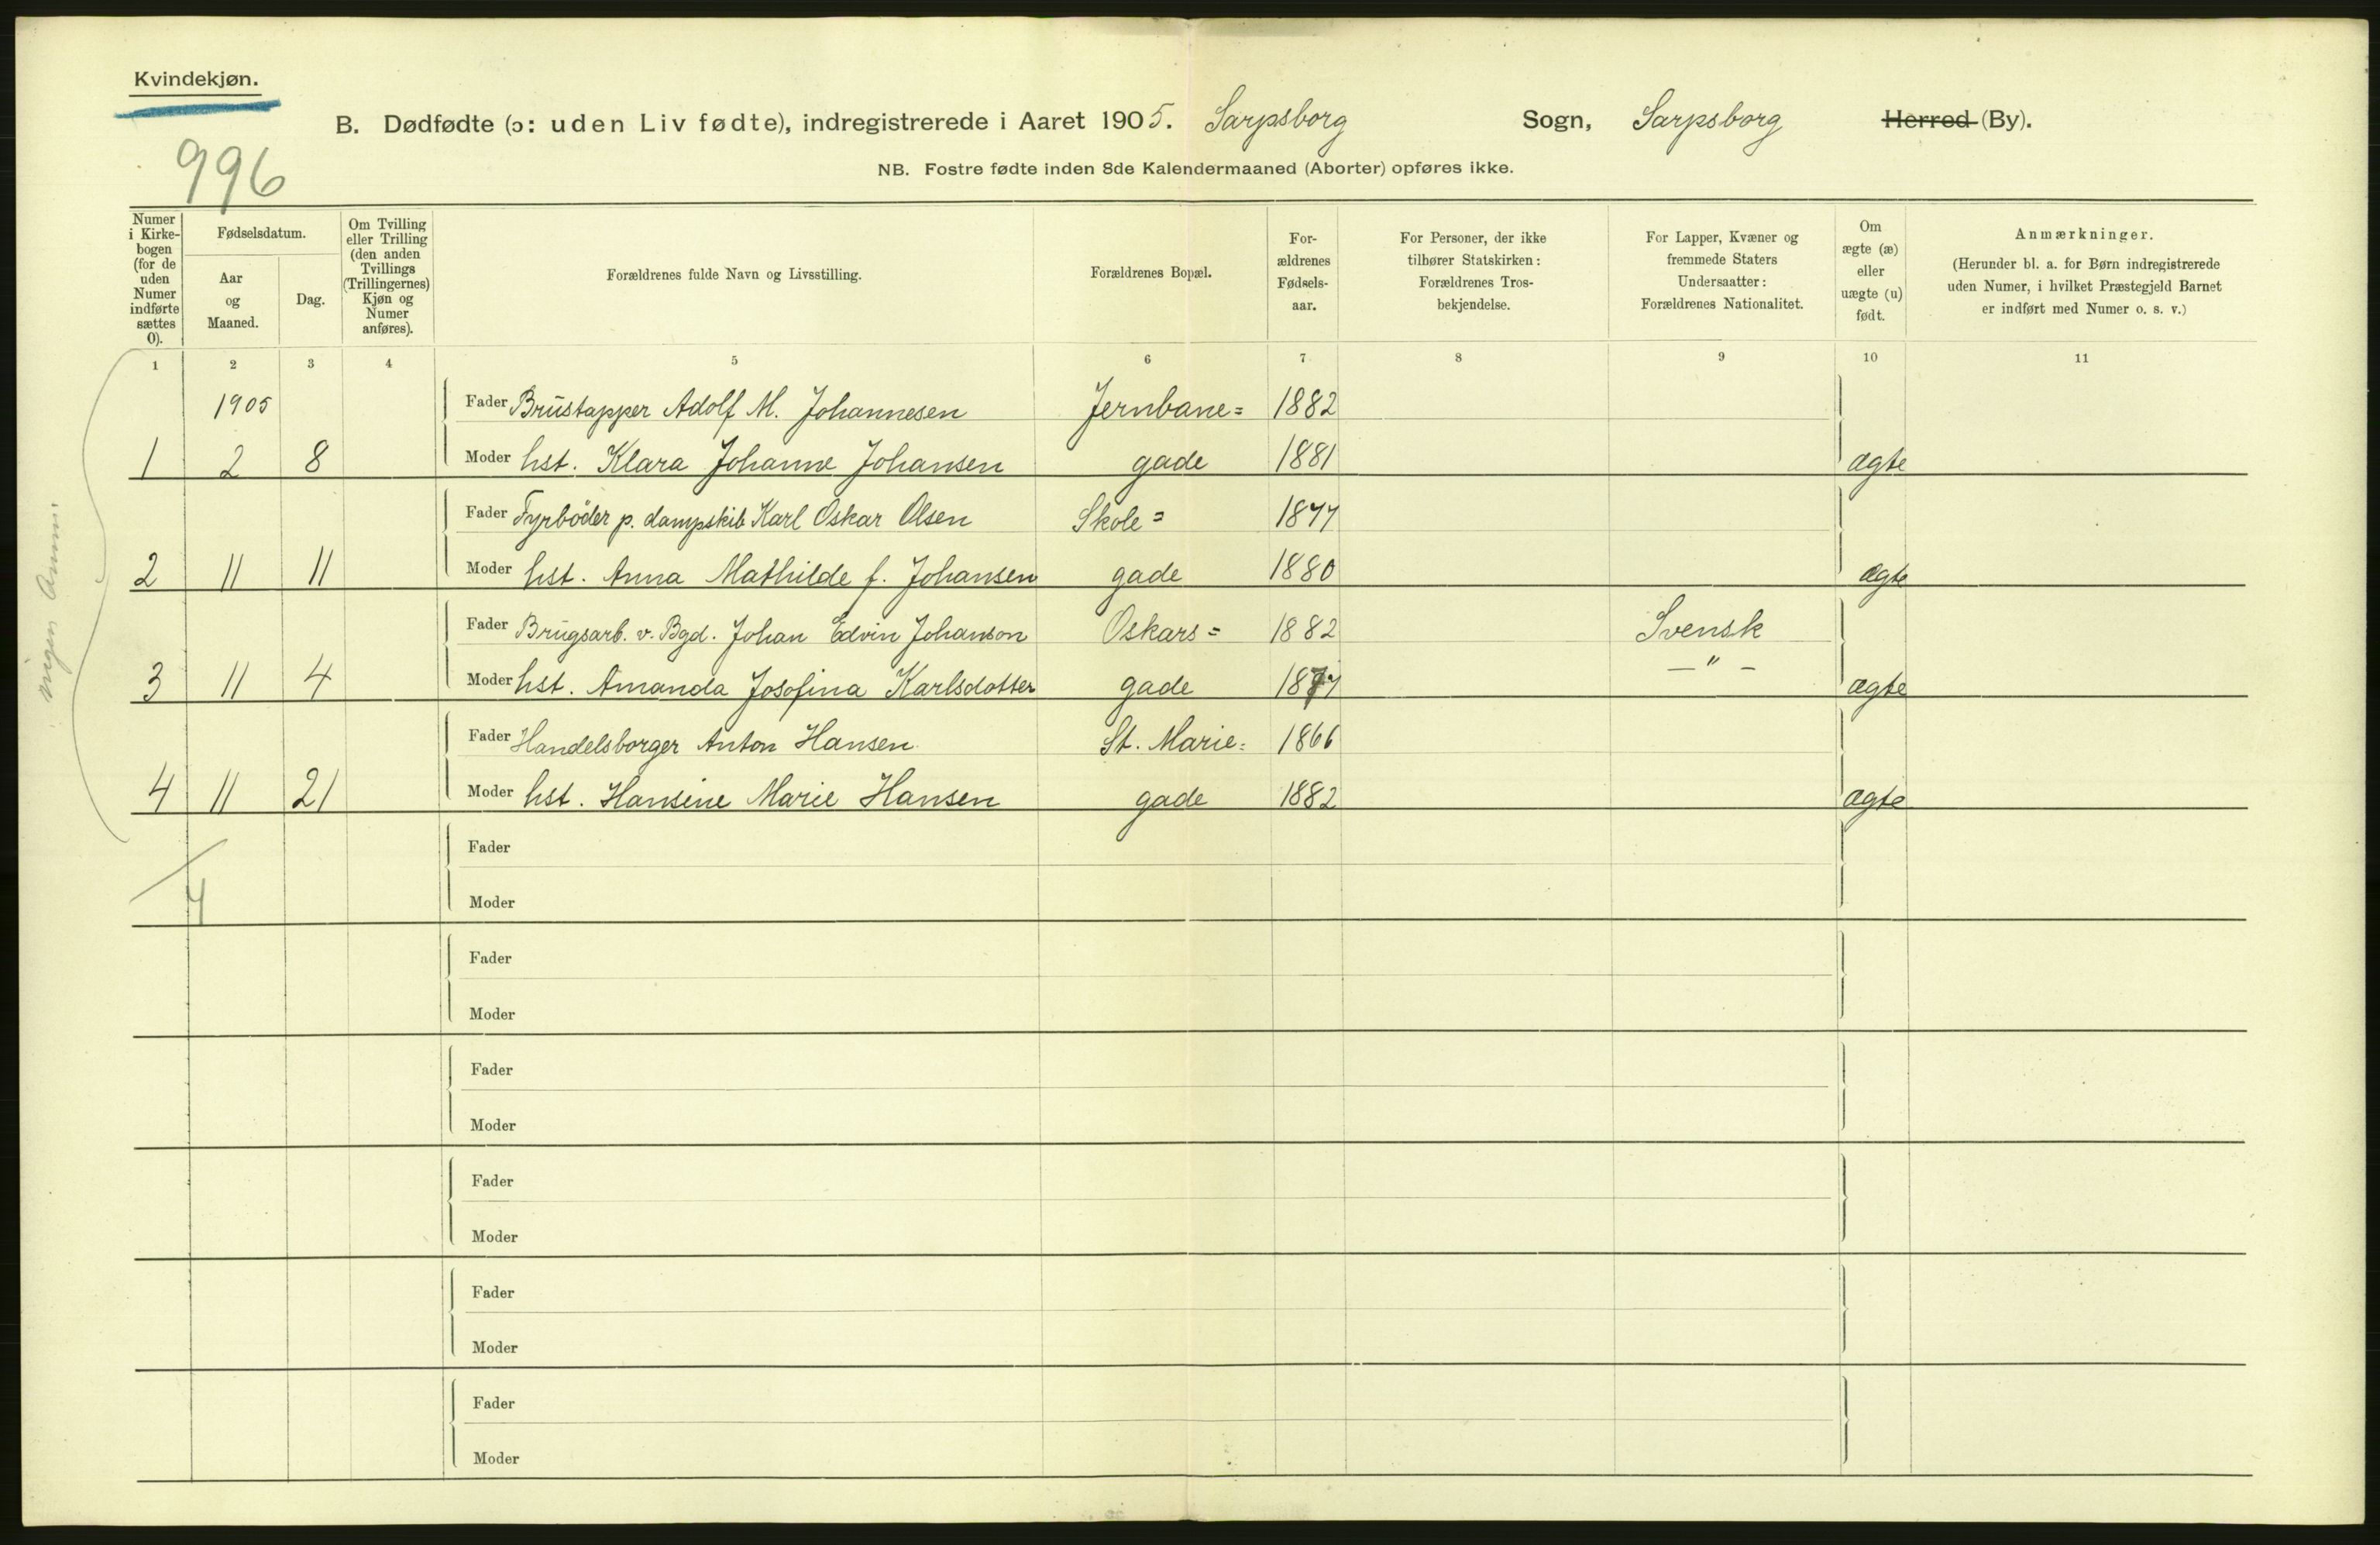 Kvindekjøn.
996
B. Dødfødte (ɔ: uden Liv fødte), indregistrerede i Aaret 1905. Sarpsborg Sogn, Sarpsborg Herred (By).
NB. Fostre fødte inden 8de Kalendermaaned (Aborter) opføres ikke.
Numer i Kirkebogen (for de uden Numer indførte sættes 0).
Fødselsdatum.
Aar og Maaned.
Dag.
Om Tvilling eller Trilling (den anden Tvillings (Trillingernes) Kjøn og Numer anføres).
Forældrenes fulde Navn og Livsstilling.
Forældrenes Bopæl.
For-ældrenes Fødsels-aar.
For Personer, der ikke tilhører Statskirken: Forældrenes Tros-bekjendelse.
For Lapper, Kvæner og fremmede Staters Undersaatter: Forældrenes Nationalitet.
Om ægte (æ) eller uægte (u) født.
Anmærkninger.
(Herunder bl. a. for Børn indregistrerede uden Numer, i hvilket Præstegjeld Barnet er indført med Numer o. s. v.)
1 2 3 4 5 6 7 8 9 10 11
1905 Fader Brüstapper Adolf M. Johannesen Jernbane= 1882
1 2 8 Moder hst. Klara Johanne Johansen gade 1881 ægte
Fader Fyrböder p. dampskib Karl Oskar Olsen Skole= 1877
2 11 11 Moder hst. Anna Mathilde f. Johansen gade 1880 ægte
Fader Brügsarb. v. Bgd. Johan Edvin Johanson Oskars= 1882 Svensk
3 11 4 Moder hst. Amanda Josofina Karlsdotter gade 1877 — " — ægte
Fader Handelsborger Anton Hansen St. Marie= 1866
4 11 21 Moder hst. Hansine Marie Hansen gade 1882 ægte
Fader
4
Moder
Fader
Moder
Fader
Moder
Fader
Moder
Fader
Moder
Fader
Moder
ingen Anm.